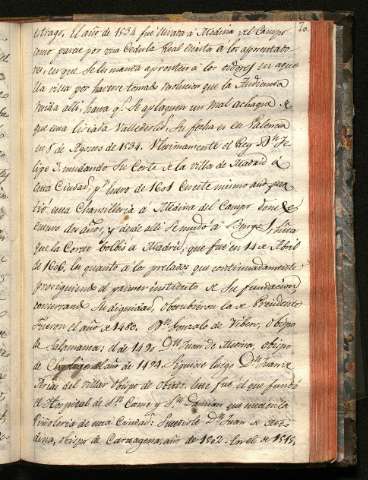 20.
el año de 1534 fue llevada a Medina del Campo
como parece por una Cedula Real escrita a los aposentado
res, en que se les manda aposentar a los oidores en aque
lla villa por haverse tomado resolucion que la Audiencia
resida alli, hasta q.e se aplaque un mal achaque de
que esta tocada Valladolid. Su fecha es en Palencia
en 5 de Agosto de 1534. Ultimamente el Rey D.n Fe
lipe 3. mudando su Corte de la villa de Madrid a
esta Ciudad, p.r Enero de 1601 en este mismo año
esta Chancilleria a Medina del Campo donde
estuvo dos años, y desde alli se mudó a Burgos, hasta
que la Corte bolbio a Madrid, que fue en 11 de Abril
de 1606. En quanto a los prelados que continuadamente
prosiguiendo el primer instituto de su fundacion
conserbando su dignidad, obtubieron la de Presidente
fueron el año de 1480. D.n Gonzalo de Vibero, Obispo
de Salamanca: el de 1490 D.n Juan de Medina, Obispo
de Cartagena el año de 1494. Siguiose luego D.n Juan
Arias del Villar Obispo de Obiedo, que fue el que fundó
el Hospital de S.n Cosme y S.n Damian que
en esta Ciudad: Sucediole D.n Juan de
Obispo de Cartagena, año de 1502. En el de 1515,